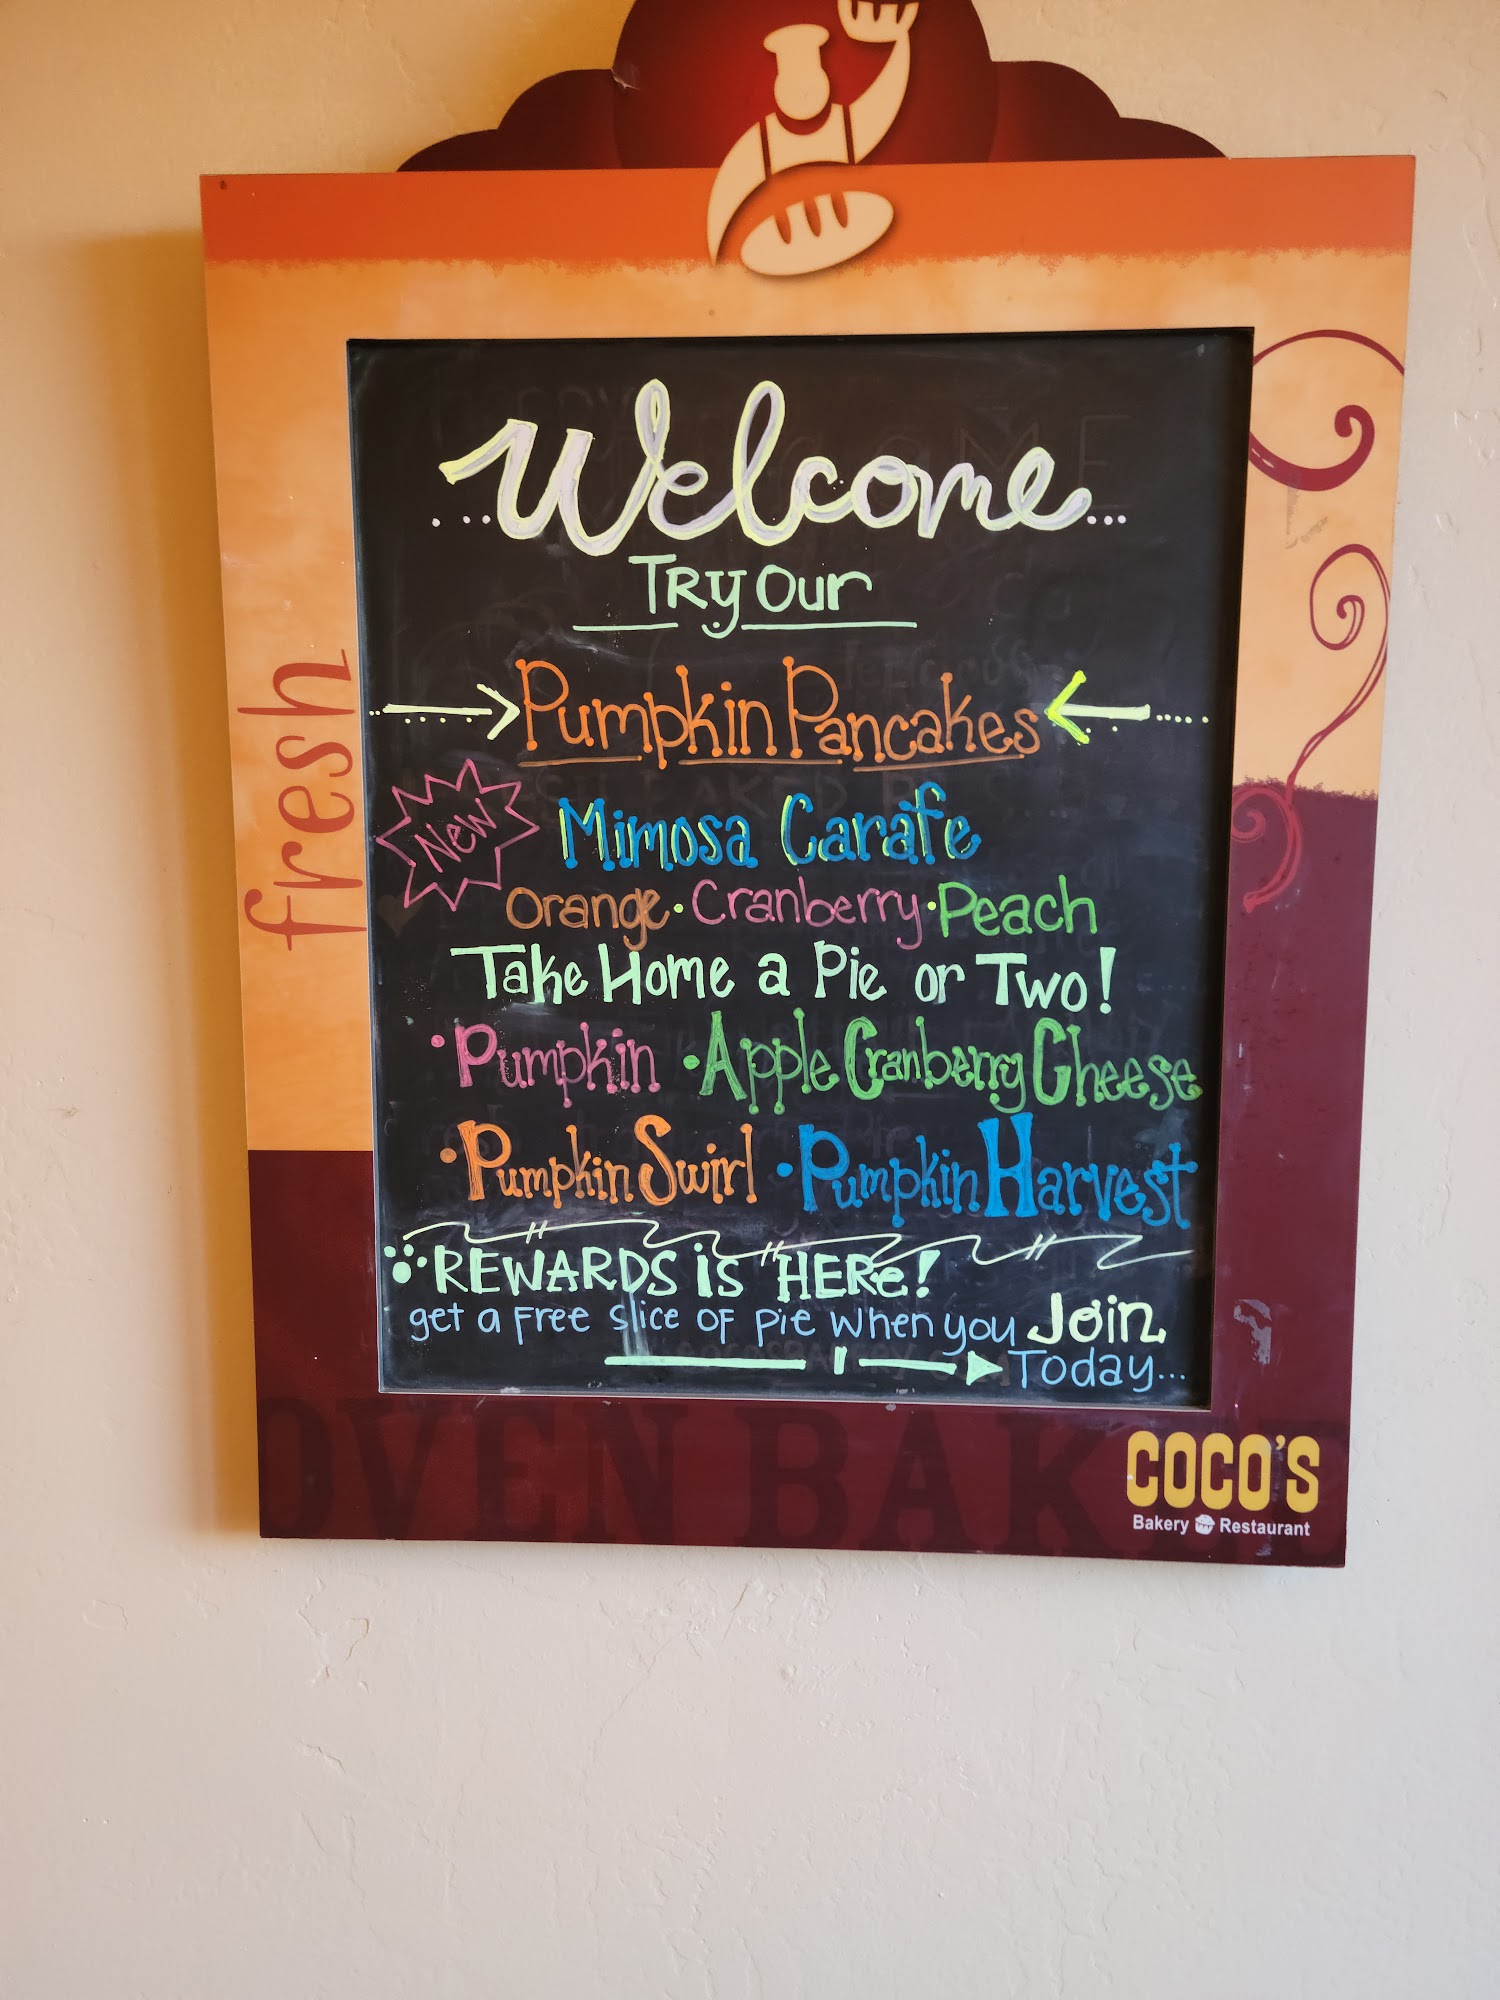 ...Welcome...
Try Our
Pumpkin Pancakes
New
Mimosa Carafe
Orange · Cranberry · Peach
Take Home a Pie or Two!
· Pumpkin · Apple Cranberry Cheese
· Pumpkin Swirl · Pumpkin Harvest
REWARDS is HERe!
get a Free slice of pie when you Join
Today...
fresh
OVEN BAKED
COCO'S
Bakery Restaurant